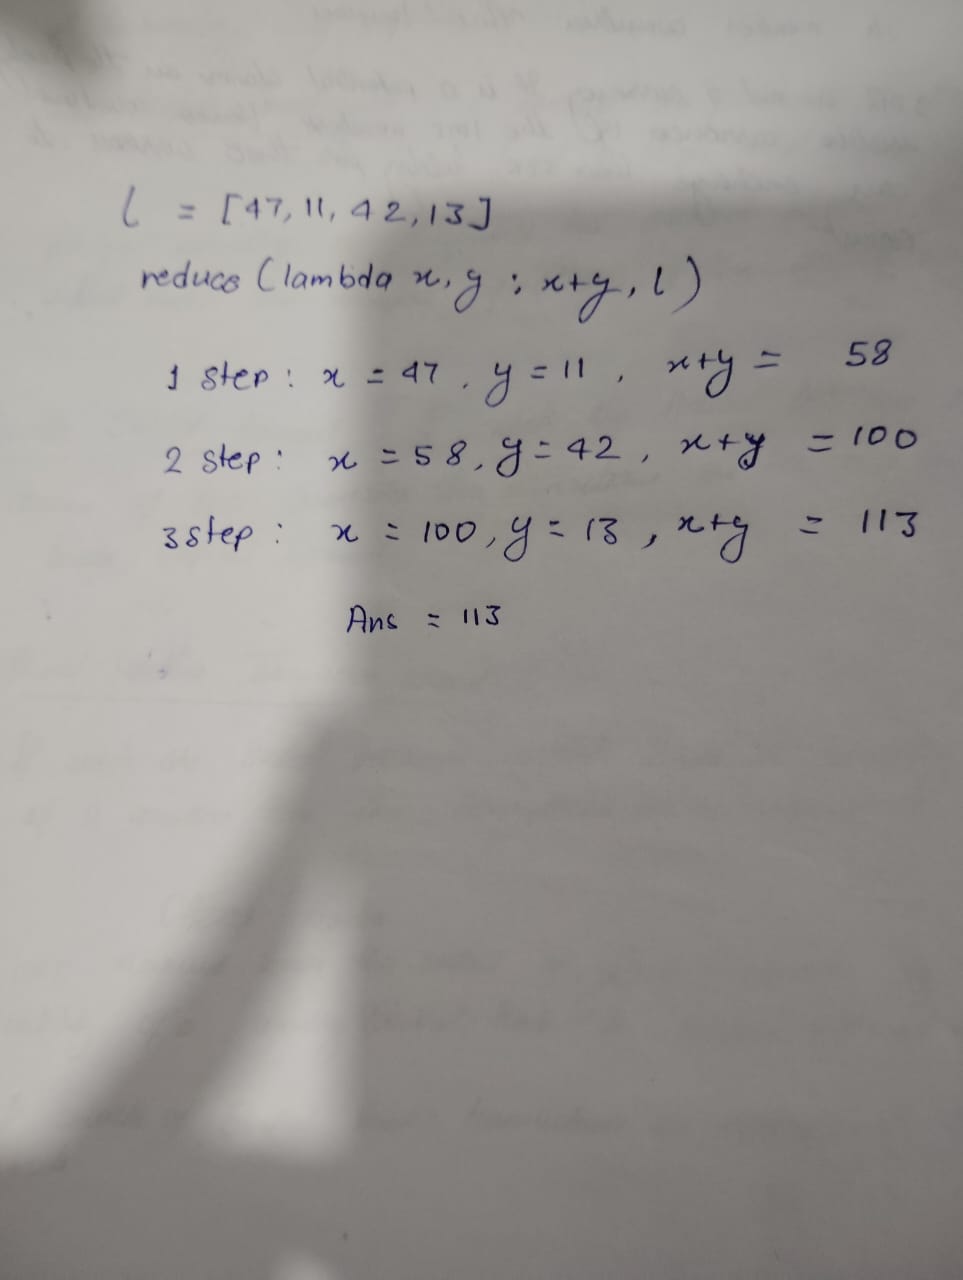 l = [47, 11, 42, 13]
reduce (lambda x, y : x+y, l)
1 step : x = 47, y = 11, x+y = 58
2 step : x = 58, y = 42, x+y = 100
3 step : x = 100, y = 13, x+y = 113
Ans = 113